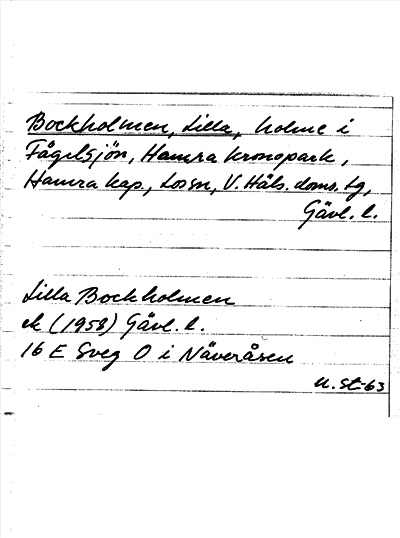 Bockholmen, Lilla, holme i
Fågelsjön, Hamra kronopark,
Hamra kap., Los sn, V. Häls. doms. tg,
Gävl. l.
Lilla Bockholmen
ek (1958) Gävl. l.
16 E Sveg O i Näveråsen
U. St-63